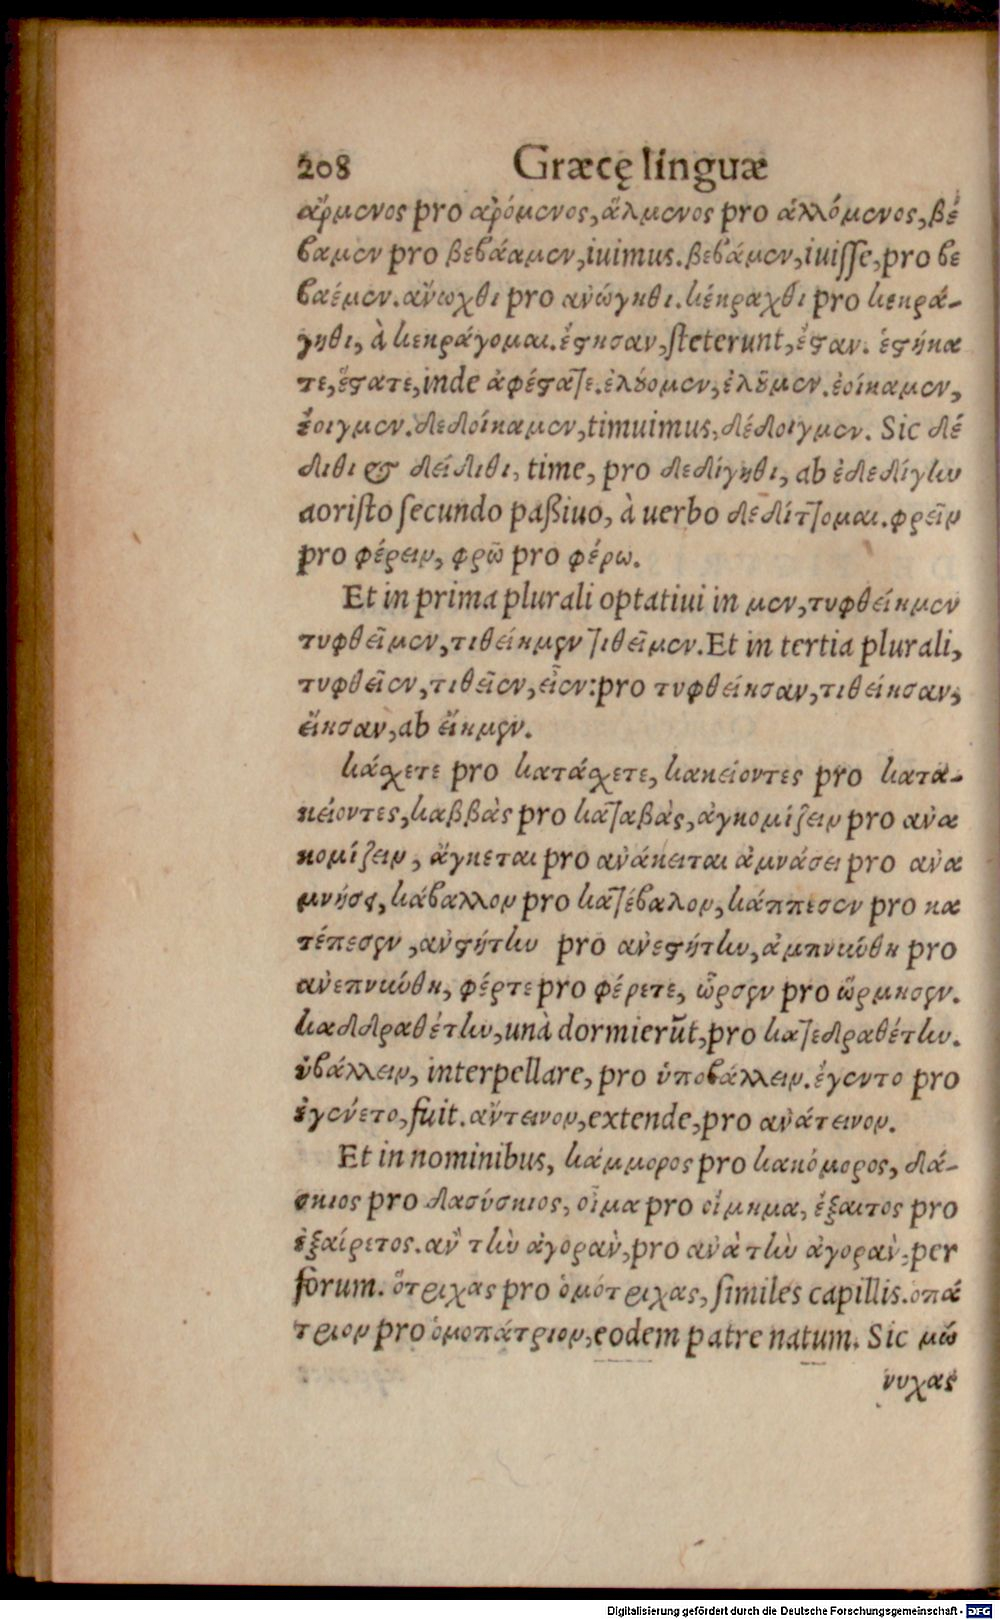 208 Græcę linguæ
ἄρμενος pro ἀρόμενος, ἅλμενος pro ἁλλόμενος, βέ
βαμεν pro βεβάαμεν, iuimus. βεβάμεν, iuisse, pro βε
βαέμεν. ἄνωχθι pro ἀνώγηθι. κέκραχθι pro κεκρά-
γηθι, à κεκράγομαι. ἔστησαν, steterunt, ἔσταν. ἑστήκα
τε, ἕστατε, inde ἀφέστατε. ἐλύομεν, ἐλῦμεν. ἐοίκαμεν,
ἔοιγμεν. δεδοίκαμεν, timuimus, δέδοιγμεν. Sic δέ
διθι & δείδιθι, time, pro δεδίγηθι, ab ἐδεδίγην
aoristo secundo passiuo, à uerbo δεδίττομαι. φρεῖν
pro φέρειν, φρῶ pro φέρω.
Et in prima plurali optatiui in μεν, τυφθείημεν
τυφθεῖμεν, τιθείημεν τιθεῖμεν. Et in tertia plurali,
τυφθεῖεν, τιθεῖεν, εἶεν: pro τυφθείησαν, τιθείησαν,
εἴησαν, ab εἴημεν.
κάσχετε pro κατάσχετε, κακείοντες pro κατα-
κείοντες, καββὰς pro καταβὰς, ἀγκομίζειν pro ἀνα
κομίζειν, ἄγκεται pro ἀνάκειται ἀμνάσει pro ἀνα
μνήσει, κάβαλλον pro κατέβαλον, κάππεσεν pro κα
τέπεσεν, ἀνστήτην pro ἀνεστήτην, ἀμπνύνθη pro
ἀνεπνύνθη, φέρτε pro φέρετε, ὦρσεν pro ὥρμησεν.
καδδραθέτην, unà dormierũt, pro κατεδραθέτην.
ὑβάλλειν, interpellare, pro ὑποβάλλειν. ἔγεντο pro
ἐγένετο, fuit. ἄντεινον, extende, pro ἀνάτεινον.
Et in nominibus, κάμμορος pro κακόμορος, δά-
σκιος pro δασύσκιος, οἶμα pro οἴμημα, ἔξαιτος pro
ἐξαίρετος. ἂν τὴν ἀγορὰν, pro ἀνὰ τὴν ἀγορὰν, per
forum. ὄτριχας pro ὁμότριχας, similes capillis. ὀπά
τριον pro ὁμοπάτριον, eodem patre natum. Sic μώ
νυχας
Digitalisierung gefördert durch die Deutsche Forschungsgemeinschaft - DFG